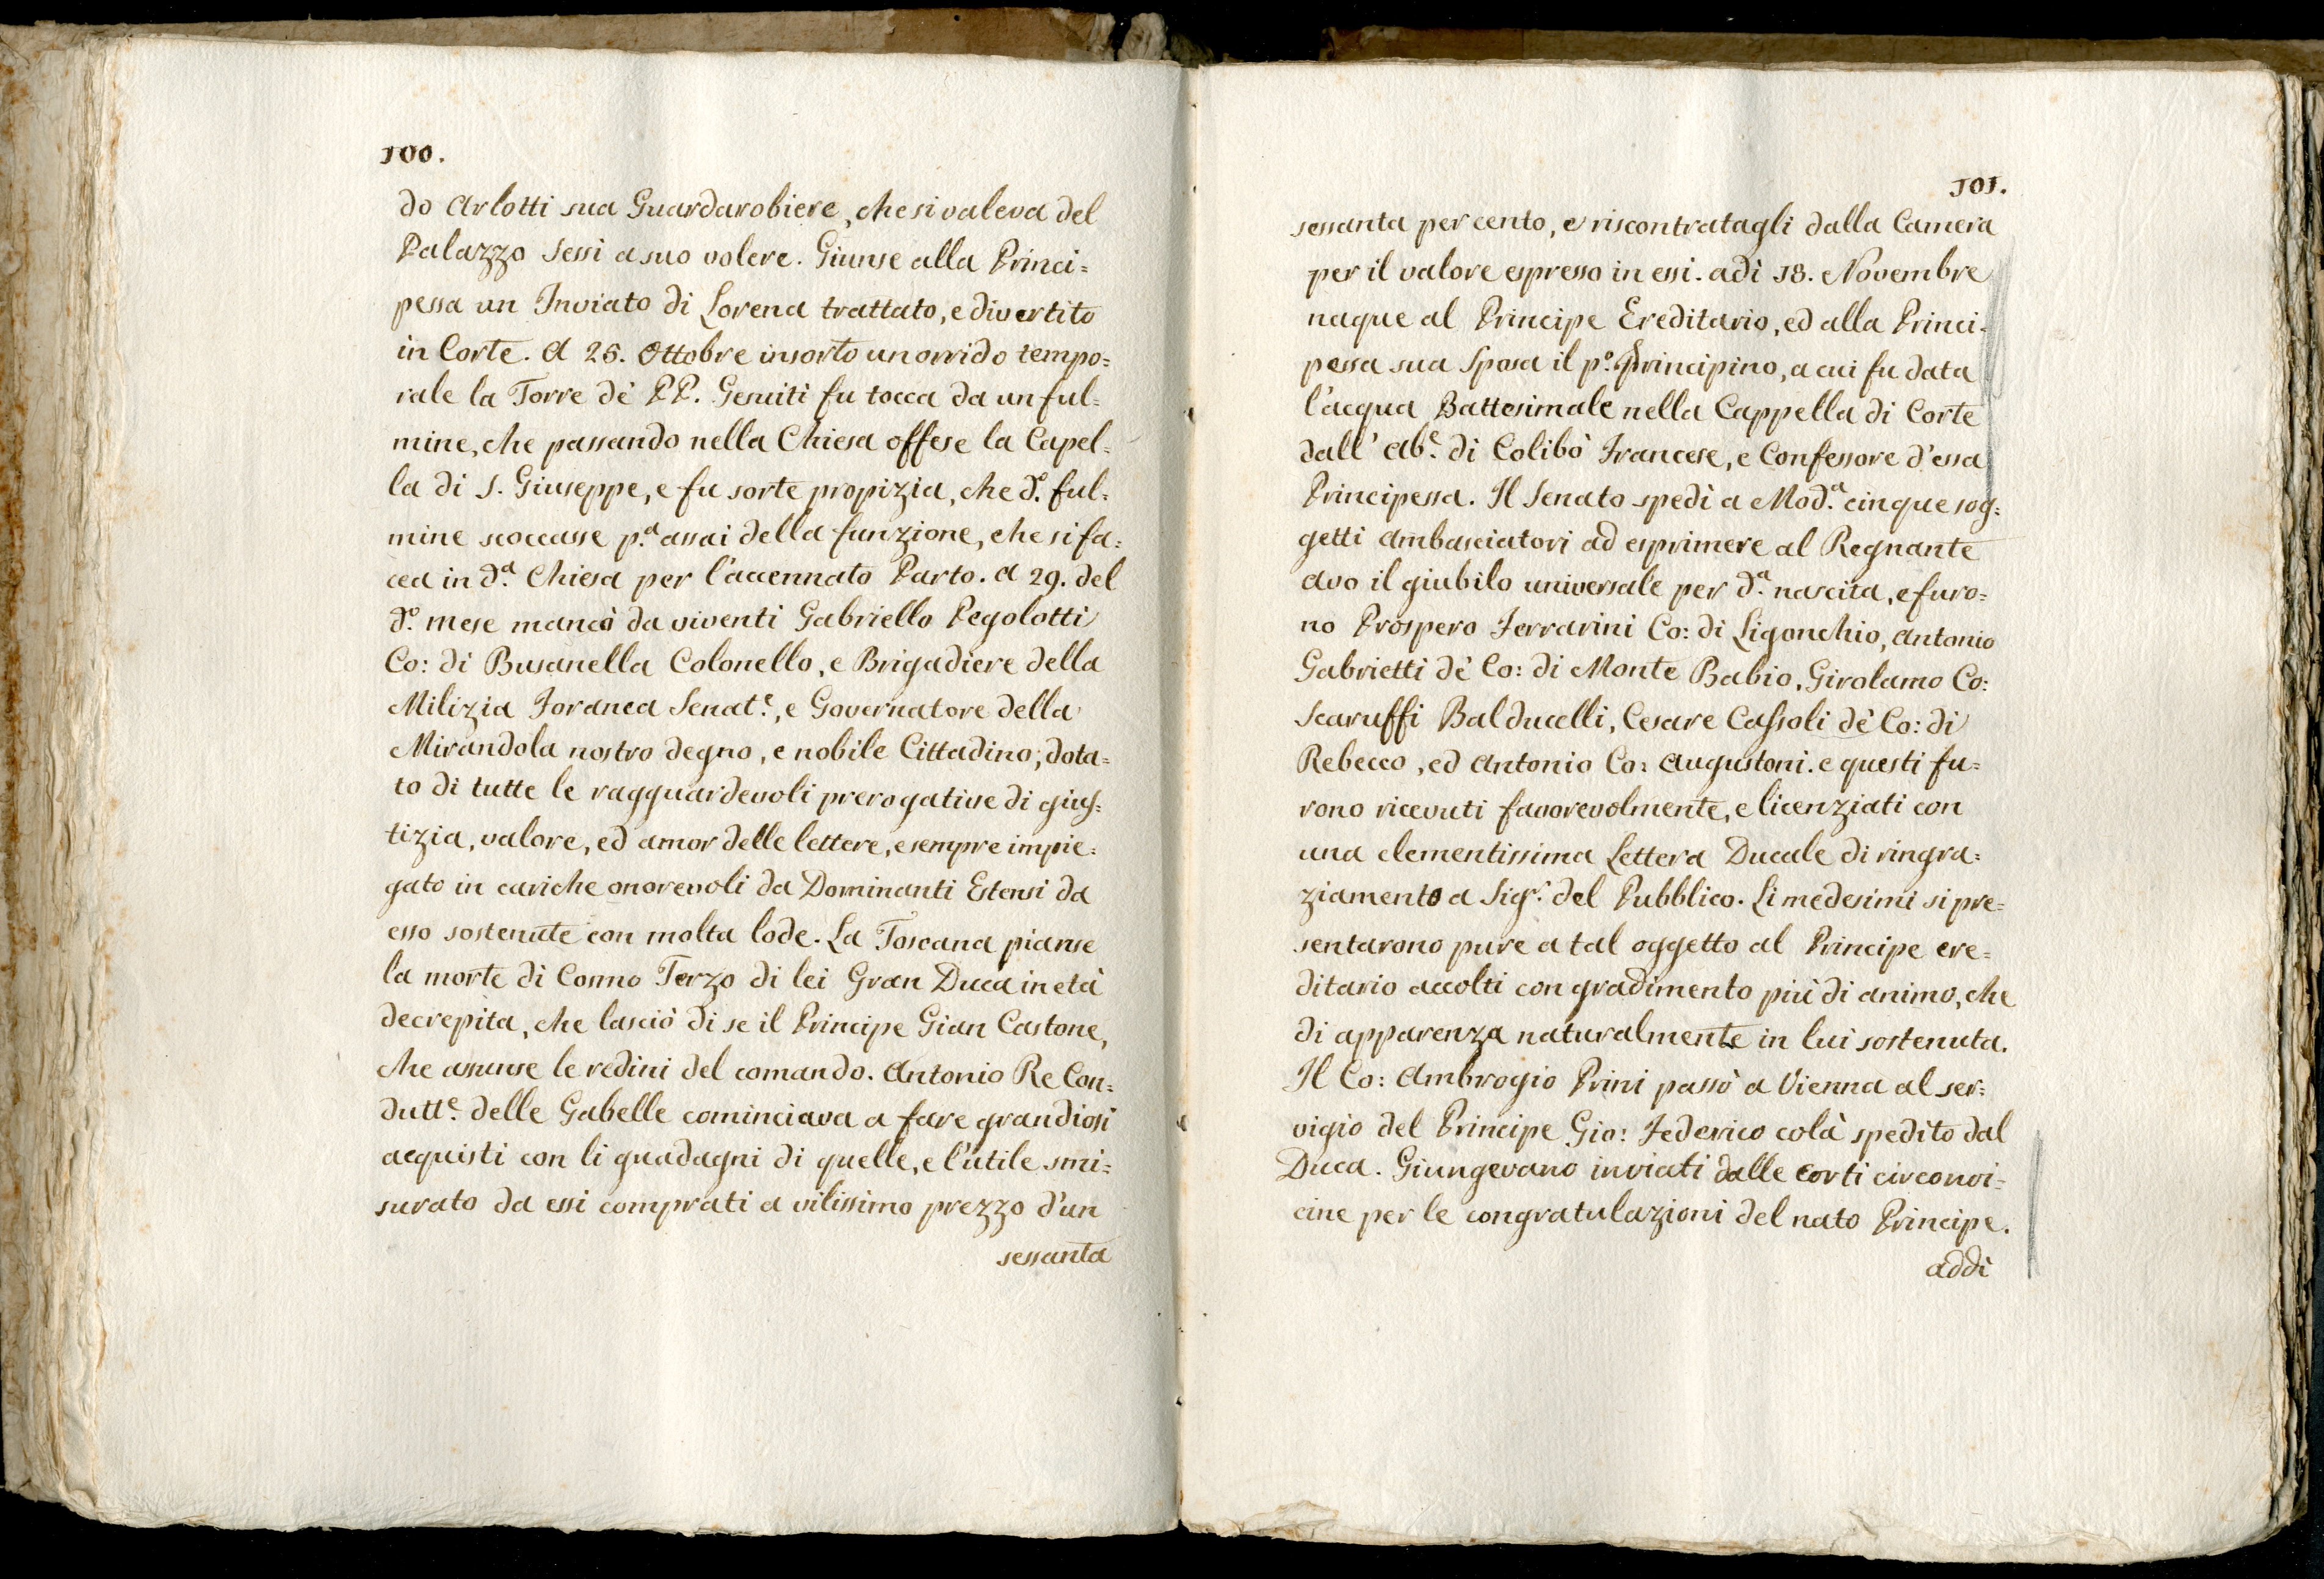 100.
do Arlotti sua Guardarobiere, che si valeva del
Palazzo Sessi a suo volere. Giunse alla Princi=
pessa un Inviato di Lorena trattato, e divertito
in Corte. A 26. Ottobre insorto un orrido tempo=
rale la Torre dè PP. Gesuiti fu tocca da un ful=
mine, che passando nella Chiesa offese la Capel=
la di S. Giuseppe, e fu sorte propizia, che d.º ful=
mine scoccasse p.ª assai della funzione, che si fa=
cea in d.ª Chiesa per l'accennato Parto. A 29. del
d.º mese mancò da viventi Gabriello Pegolotti
Co: di Busanella Colonello, e Brigadiere della
Milizia Foranea Senat.e, e Governatore della
Mirandola nostro degno, e nobile Cittadino, dota=
to di tutte le ragguardevoli prerogative di gius=
tizia, valore, ed amor delle lettere, e sempre impie=
gato in cariche onorevoli da Dominanti Estensi da
esso sostenute con molta lode. La Toscana pianse
la morte di Cosmo Terzo di lei Gran Duca in età
decrepita, che lasciò di se il Principe Gian Castone,
che assunse le redini del comando. Antonio Re Con=
dutt.e delle Gabelle cominciava a fare grandiosi
acquisti con li guadagni di quelle, e l'utile smi=
surato da essi comprati a vilissimo prezzo d'un
sessanta
101.
sessanta per cento, e riscontratagli dalla Camera
per il valore espresso in essi. adì 18. Novembre
naque al Principe Ereditario, ed alla Princi=
pessa sua Sposa il p.º Principino, a cui fu data
l'acqua Battesimale nella Cappella di Corte
dall' Ab.e di Colibò Francese, e Confessore d'essa
Principessa. Il Senato spedì a Mod.ª cinque sog=
getti Ambasciatori ad esprimere al Regnante
Avo il giubilo universale per d.ª nascita, e furo=
no Prospero Ferrarini Co: di Ligonchio, Antonio
Gabrietti dè Co: di Monte Babio, Girolamo Co:
Scaruffi Balducelli, Cesare Cassoli dè Co: di
Rebecco, ed Antonio Co: Augustoni. e questi fu=
rono ricevuti favorevolmente, e licenziati con
una clementissima Lettera Ducale di ringra=
ziamento a Sig.ri del Pubblico. Li medesimi si pre=
sentarono pure a tal oggetto al Principe ere=
ditario accolti con gradimento più di animo, che
di apparenza naturalmente in lui sostenuta.
Il Co: Ambrogio Prini passò a Vienna al ser=
vigio del Principe Gio: Federico colà spedito dal
Duca. Giungevano inviati dalle Corti circonvi=
cine per le congratulazioni del nato Principe.
addì